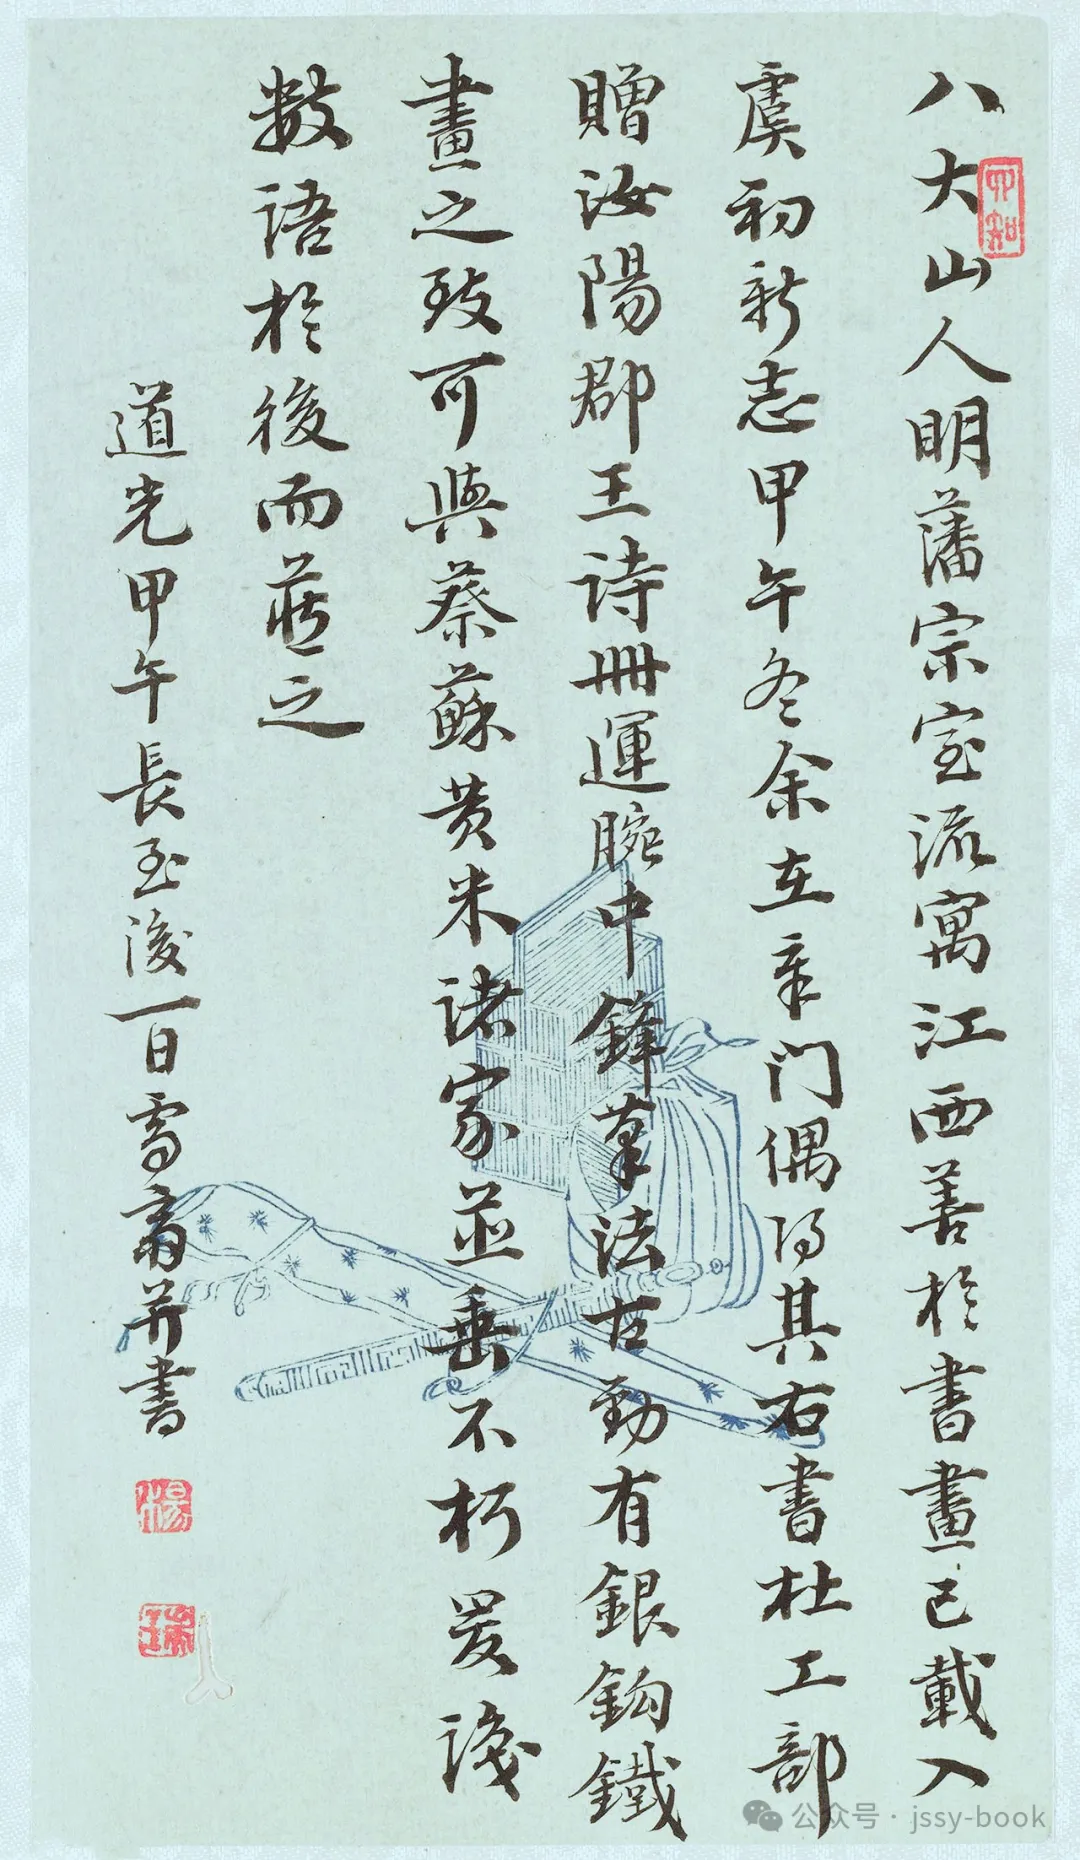 八大山人明藩宗室流寓江西善於書畫已載入
虞初新志甲午冬余在章門偶得其右書杜工部
贈汝陽郡王詩冊運腕中鋒筆法古勁有銀鉤鐵
畫之致可與蔡蘇黄米諸家並垂不朽爰識
數語於後而藏之
道光甲午長至後一日雪齋并書
四知
楊
公众号·jssy-book